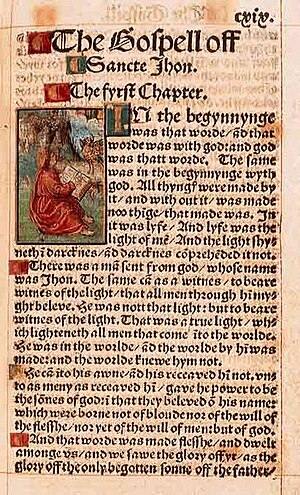 cxix.
The Gospell off
Sancte Jhon.
The fyrst Chapter.
IN the begynnynge
was that worde/ ād that
worde was with god: and god
was thatt worde. The same
was in the begynnynge wyth
god. All thyngꝭ were made by
it/ and with out it/ was made
noo thīge/ that made was. In
it was lyfe/ And lyfe was the
light of mē/ And the light shy-
neth ī darcknes/ ād darcknes cōprehēded it not.
There was a mā sent from god/ whose name
was Jhon. The same cā as a witnes/ to beare
witnes of the light/ that all men through hī my-
ght beleve. He was nott that light: but to beare
witnes of the light. That was a true light/ wh-
ich lighteneth all men that come īto the worlde.
He was in the worlde/ ād the worlde by hī was
made: and the worlde knewe hym not.
He cā īto his awne/ ād his receaved hī not. vn-
to as meny as receaved hī/ gave he power to be
the sōnes of god: ī that they beleved ō his name:
which were borne not of bloude nor of the will of
the flesshe/ nor yet of the will of men: but of god.
And that worde was made flesshe/ and dwelt
amonge vs/ and we sawe the glory off yt/ as the
glory off the only begotten sonne off the father/